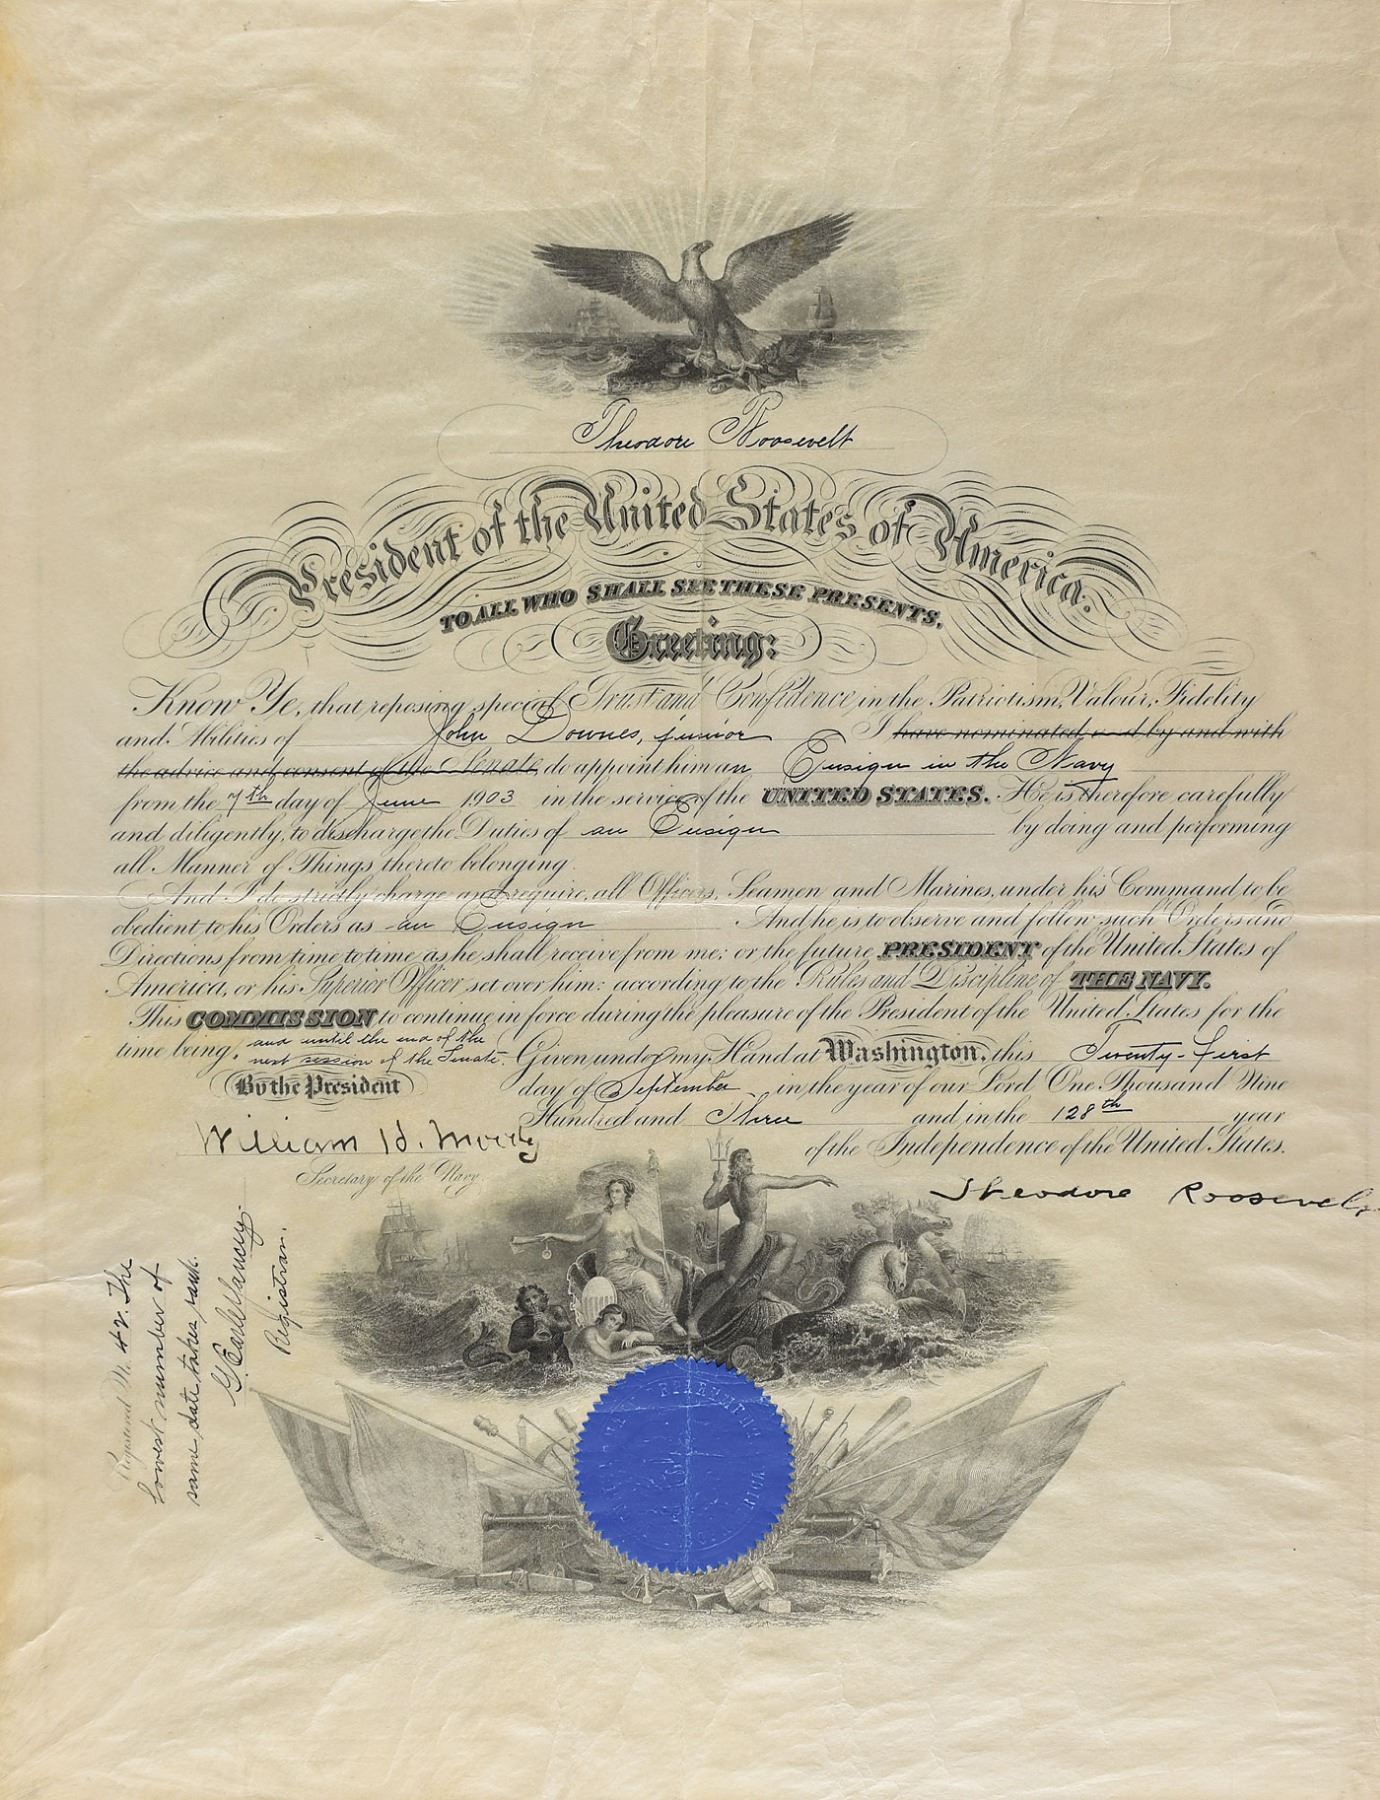 Theodore Roosevelt
President of the United States of America.
TO ALL WHO SHALL SEE THESE PRESENTS,
Greeting:
Know Ye, that reposing special Trust and Confidence in the Patriotism, Valour, Fidelity
and Abilities of John Downes, junior I have nominated, and by and with
the advice and consent of the Senate, do appoint him an Ensign in the Navy
from the 7th day of June 1903 in the service of the UNITED STATES. He is therefore carefully
and diligently, to discharge the Duties of an Ensign by doing and performing
all Manner of Things thereto belonging.
And I do strictly charge and require, all Officers, Seamen and Marines, under his Command, to be
obedient to his Orders as an Ensign And he is to observe and follow such Orders and
Directions from time to time as he shall receive from me; or the future PRESIDENT of the United States of
America, or his Superior Officer set over him: according to the Rules and Discipline of THE NAVY.
This COMMISSION to continue in force during the pleasure of the President of the United States for the
time being, and until the end of the
next session of the Senate. Given under my Hand at Washington, this Twenty-first
By the President day of September in the year of our Lord One Thousand Nine
Hundred and Three and in the 128th year
of the Independence of the United States.
William H. Moody
Secretary of the Navy.
Theodore Roosevelt
Registered No. 42. The
lowest number of
same date takes rank.
Registrar.